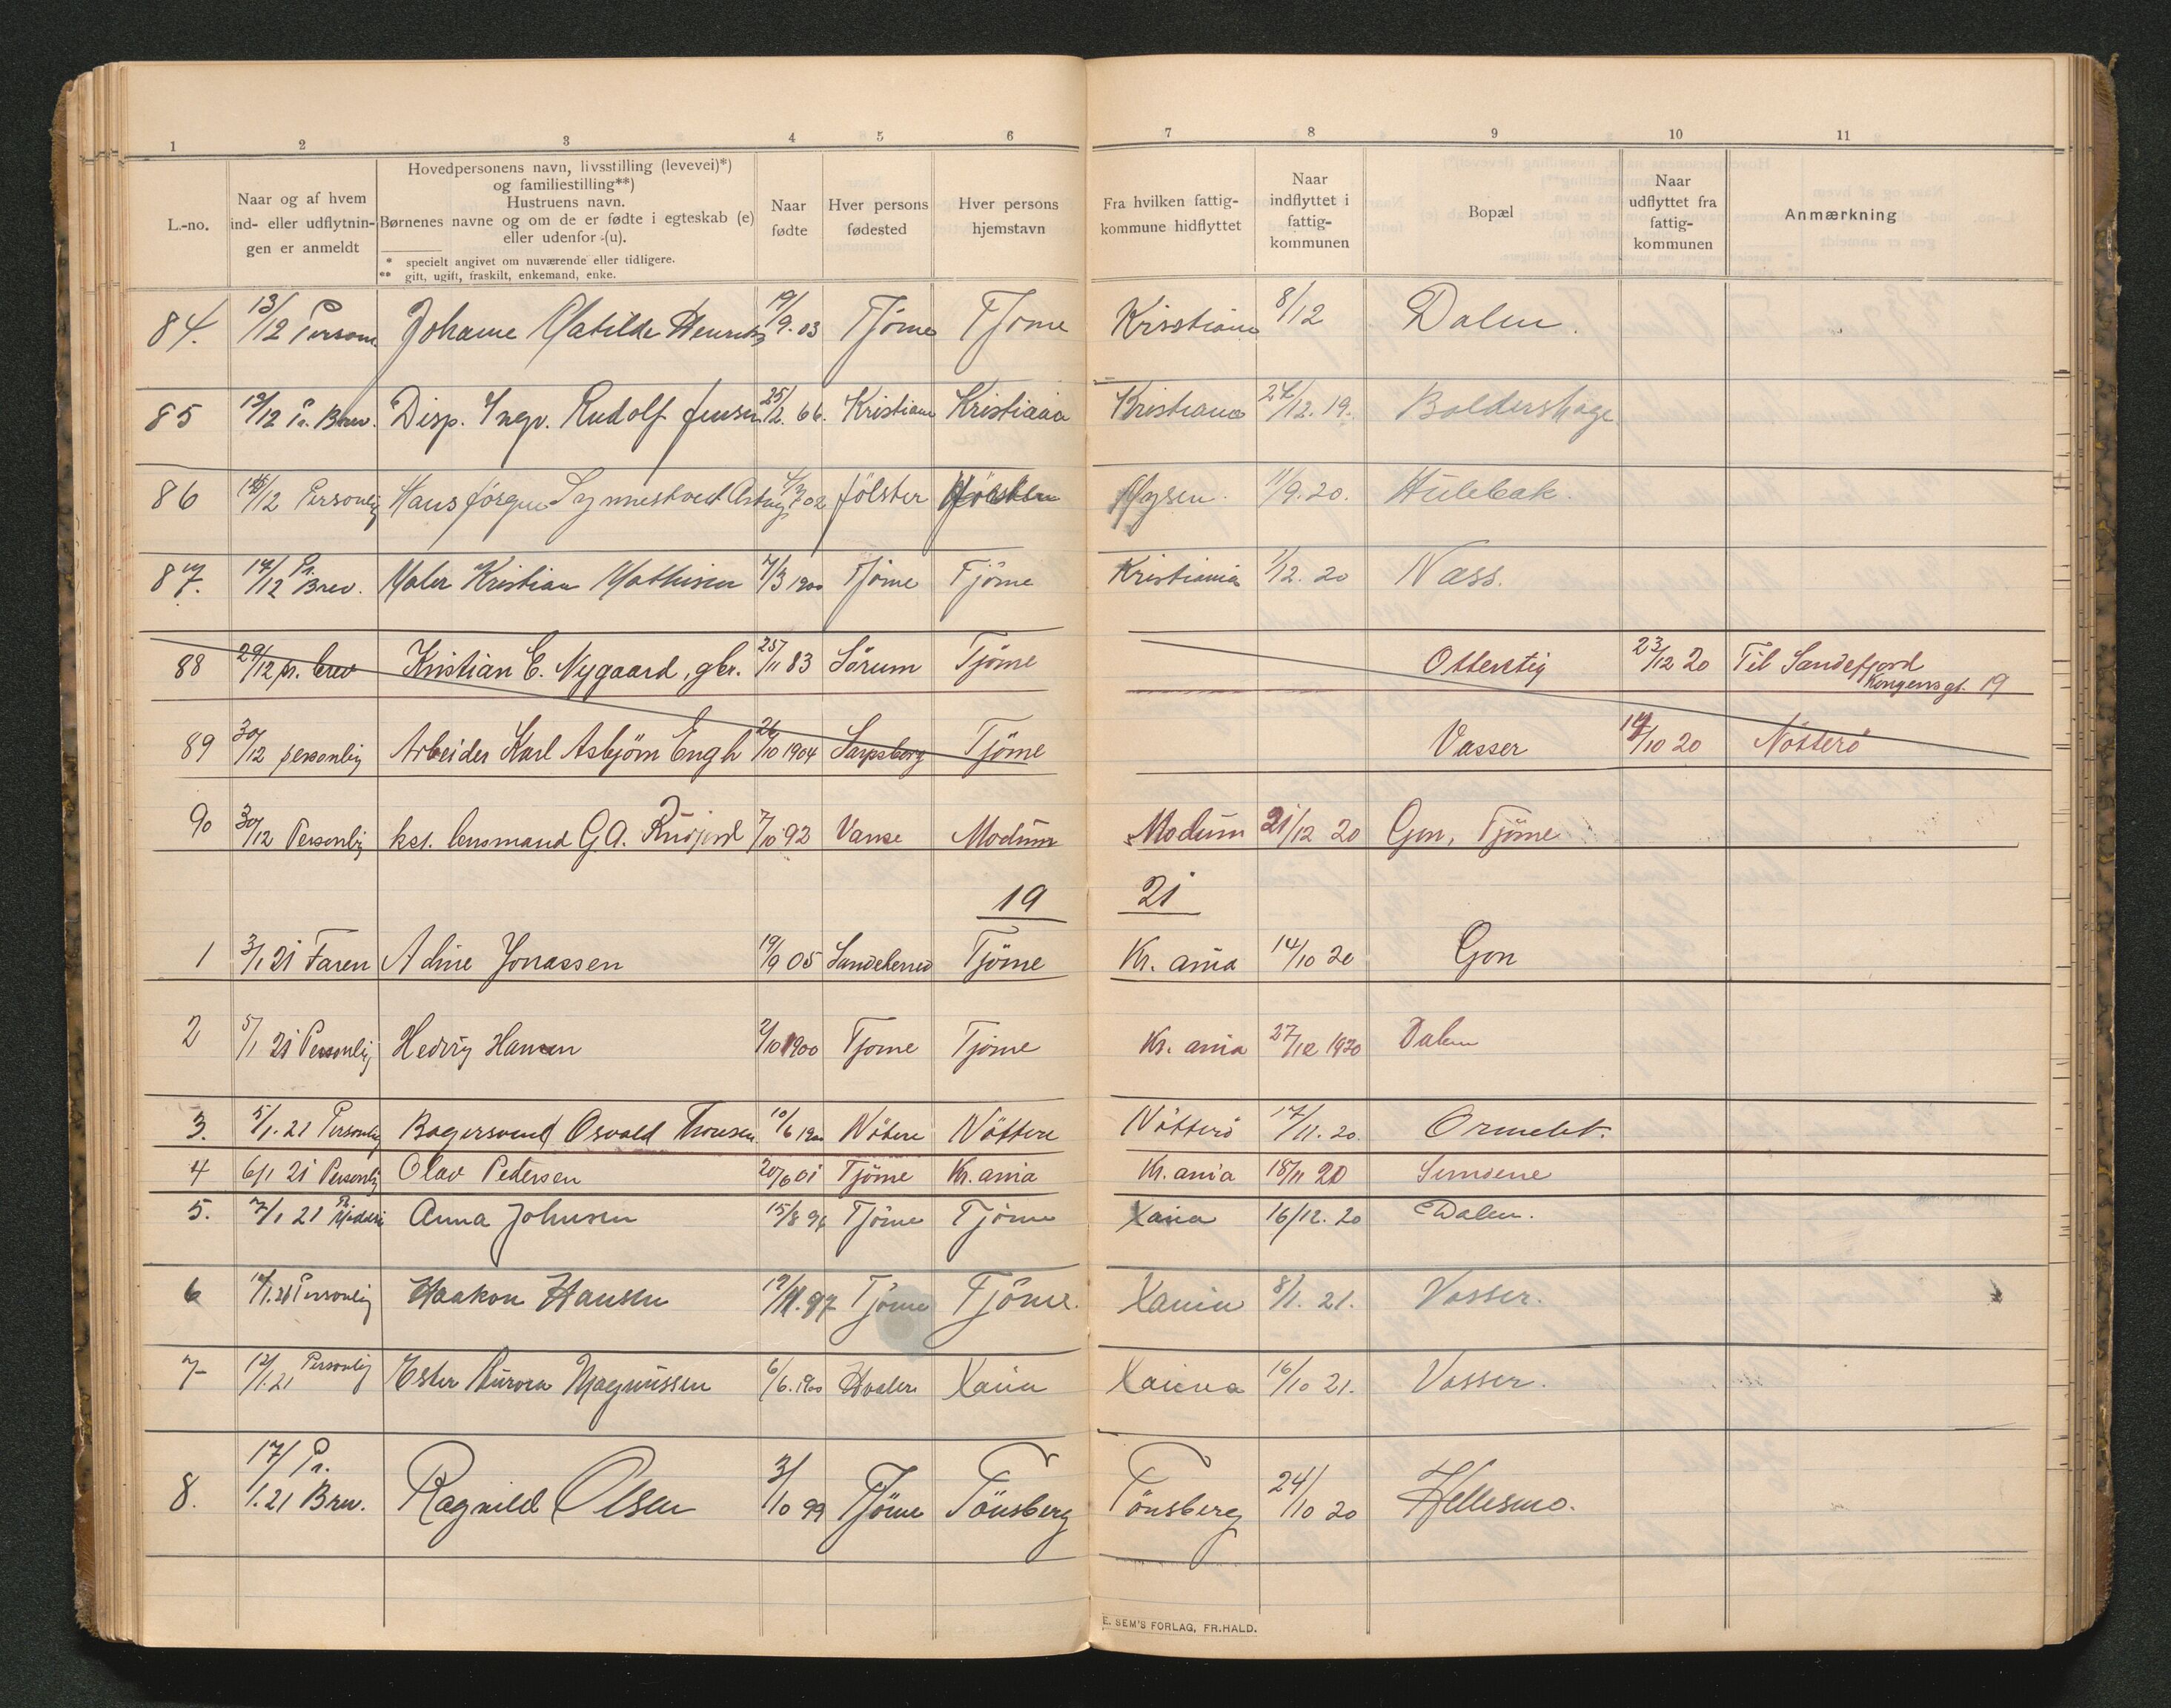 1 2 3 4 5 6 7 8 9 10 11
L.-no.
Naar og af hvem
ind- eller udflytnin-
gen er anmeldt
Hovedpersonens navn, livsstilling (levevei)*)
og familiestilling**)
Hustruens navn.
Børnenes navne og om de er fødte i egteskab (e)
eller udenfor (u).
* specielt angivet om nuværende eller tidligere.
** gift, ugift, fraskilt, enkemand, enke.
Naar
fødte
Hver persons
fødested
Hver persons
hjemstavn
Fra hvilken fattig-
kommune hidflyttet
Naar
indflyttet i
fattig-
kommunen
Bopæl
Naar
udflyttet fra
fattig-
kommunen
Anmærkning
84. 13/12 Person Johanne Matilde 19/9.03 Tjöme Tjöme Kristiania 8/12 Dalen.
85 13/12 Pr. Brev. Disp. Ingv. Rudolf Jensen 25/2. 66. Kristiania Kristiania Kristiania 24/12. 19. Boldershage
86 /12 Personlig Hans Jörgen Synnestvedt 02 Jölster Jölster Mysen. 11/9. 20. Hulebak.
87. 14/12 Pr. Brev. Maler Kristian Mathisen 7/3 1900 Tjöme Tjöme Kristiania 1/12. 20 Næss.
88 29/12 pr. brev Kristian E. Nygaard, gbr. 25/11 83 Sörum Tjöme Otterstig 23/12 20 Til Sandefjord
Kongensgt. 19
89 30/12 personlig Arbeider Karl Asbjörn Engh 26/10 1904 Sarpsborg Tjöme Vasser /10 20 Nötterö
90 30/12 Personlig kst. lensmand G.A. Rudjord 7/10 92 Vanse Modum Modum 21/12 20 Gon, Tjöme
19 21
1 3/1 21 Faren Adine Jonassen 19/9 05 Sandeherred Tjöme Kr. ania 14/10 20 Gon
2 5/1 21 Personlig Hedvig Hansen 2/10 1900 Tjöme Tjöme Kr. ania 27/12 1920 Dalen
3. 5/1. 21 Personlig Bagersvend Osvald Thoresen. 10/6 1900 Nötterö Nötterö Nötterö 17/11. 20. Ormelet.
4 6/1 21 Personlig Olav Pedersen 20/6 01 Tjöme Kr. ania Kr. ania 18/11 20 Sundene
5. 7/1 21 Pr. Anna Johnsen 15/8 96 Tjöme Tjöme Xania 16/12. 20 Dalen.
6 /1.21 Personlig Haakon Hansen 19/11. 97 Tjöme Tjöme. Xania 8/1. 21. Vasser.
7 12/1. 21 Personlig Ester Aurora Magnussen 6/6. 1900 Hvaler Xania Xania 16/10 21. Vasser.
8. 17/1. 21 Pr. Brev. Ragnild Olsen 3/10 99 Tjöme Tönsberg Tönsberg 24/10 20 Hellesmo.
E. SEM'S FORLAG, FR.HALD.